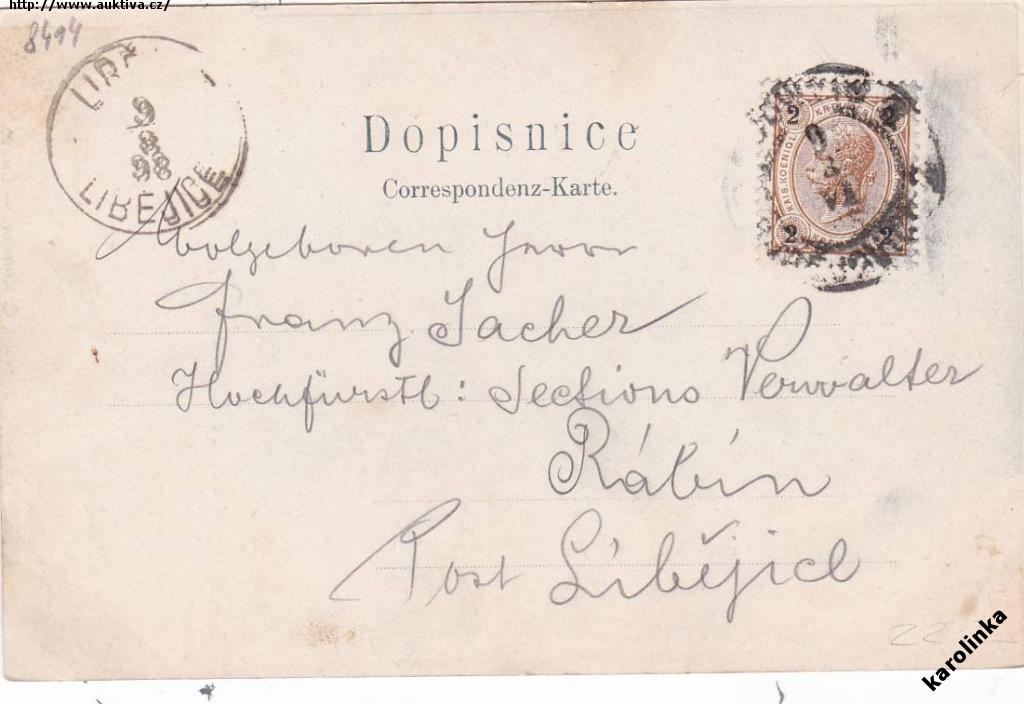 http://www.auktiva.cz/
8494
LIBĚJICE
9
8
98
Dopisnice
Correspondenz-Karte.
2 KR 2
KAIS. KOENIGL.
2 2
9
8
VI
Wolgeboren Herrn
Franz Sacher
Hochfürstl: Sections Verwalter
Rábín
Post Libějice
22
karolinka